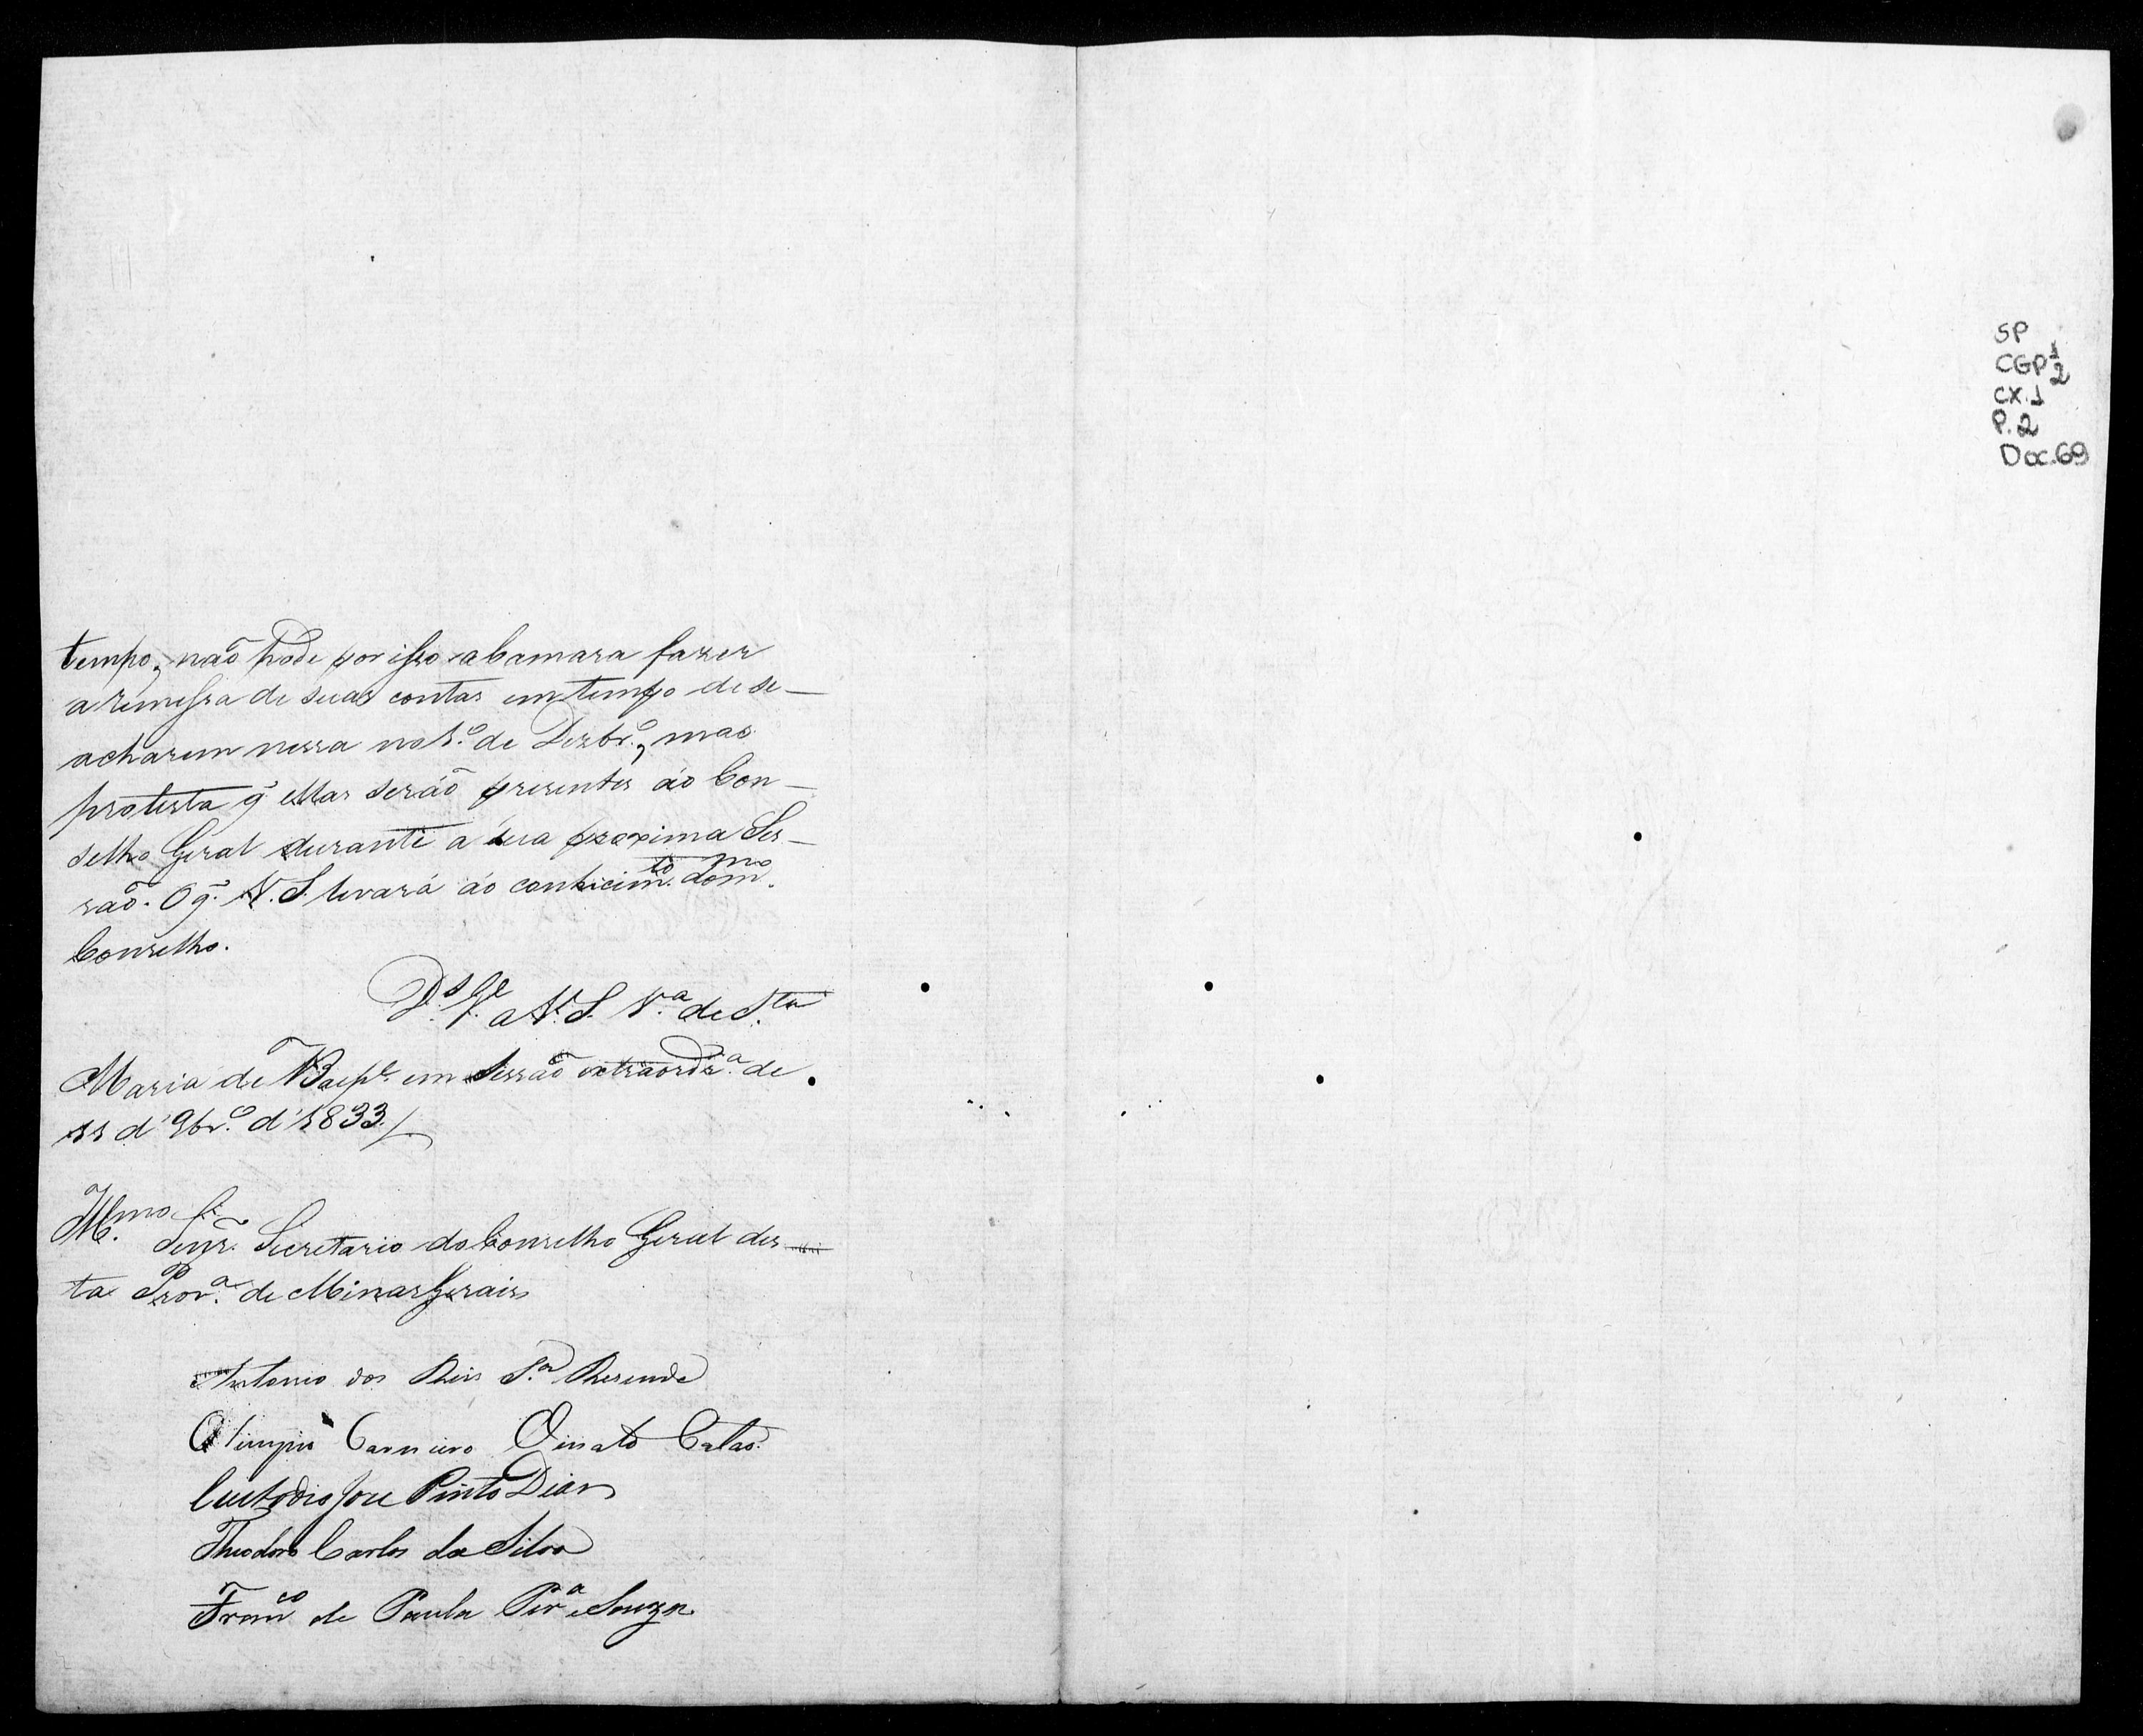 tempo, naõ pode por isso a Camara fazer
a remessa de suas contas em tempo de se-
acharem nessa no 1.º de Dezbr.º, mas
protesta q̃ ellas seráõ presentes áo Con-
selho Geral durante a sua proxima Ses-
saõ. O q̃ V. S. levará áo conhecim.to do m.mo
Conselho.
D.s G.e a V. S. V.a de S.ta
Maria de Baep.e em Sessaõ extraordr.a de
11 d'9br.o d'1833./
Ill.mo Senr. Secretario do Conselho Geral des
ta Prov.a de Minas Gerais
Antonio dos Reis S.a Resende
Olimpio Carneiro Viriato Cataõ
Custodio Jose Pinto Dias
Theodoro Carlos da Silva
Fran.co de Paula Per.a e Souza
SP
CGP 1/2
CX. 1
P. 2
Doc. 69